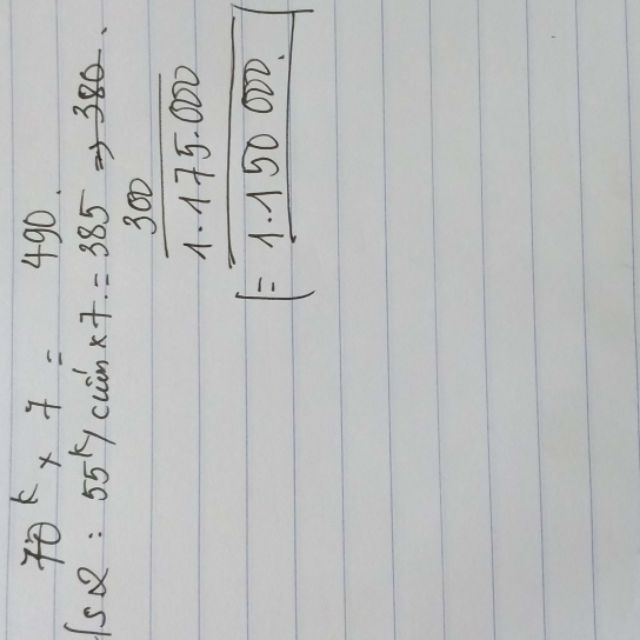 70k x 7 = 490.
: 55k/cuốn x 7 = 385 => 380.
300
1.175.000
(= 1.150 000.)